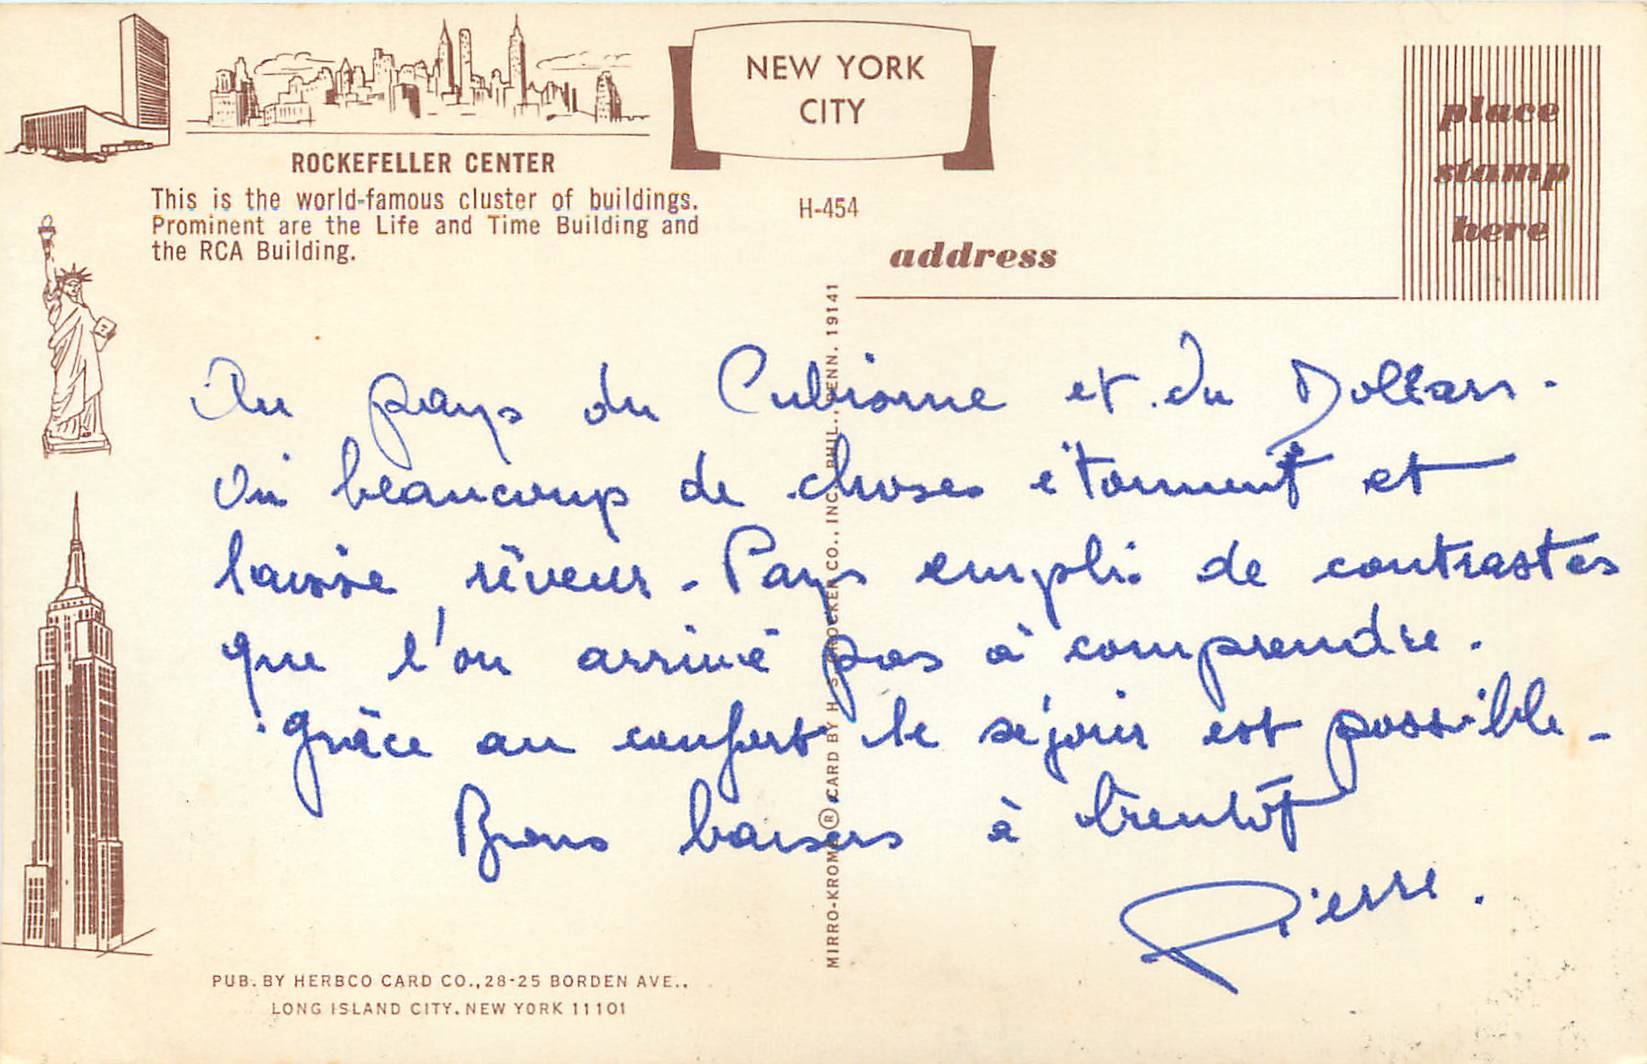 NEW YORK
CITY
place
stamp
here
ROCKEFELLER CENTER
This is the world-famous cluster of buildings.
Prominent are the Life and Time Building and
the RCA Building.
H-454
address
Au pays du Cubisme et du Dollars.
Où beaucoup de choses étonnent et
laisse rêveur - Pays empli de contrastes
que l'on arrive pas à comprendre.
Grâce au confort le séjour est possible -
Bons baisers à bientôt
Pierre.
MIRRO-KROME ® CARD BY H. S. CROCKER CO., INC., PHIL., PENN. 19141
PUB. BY HERBCO CARD CO., 28-25 BORDEN AVE.,
LONG ISLAND CITY, NEW YORK 11101